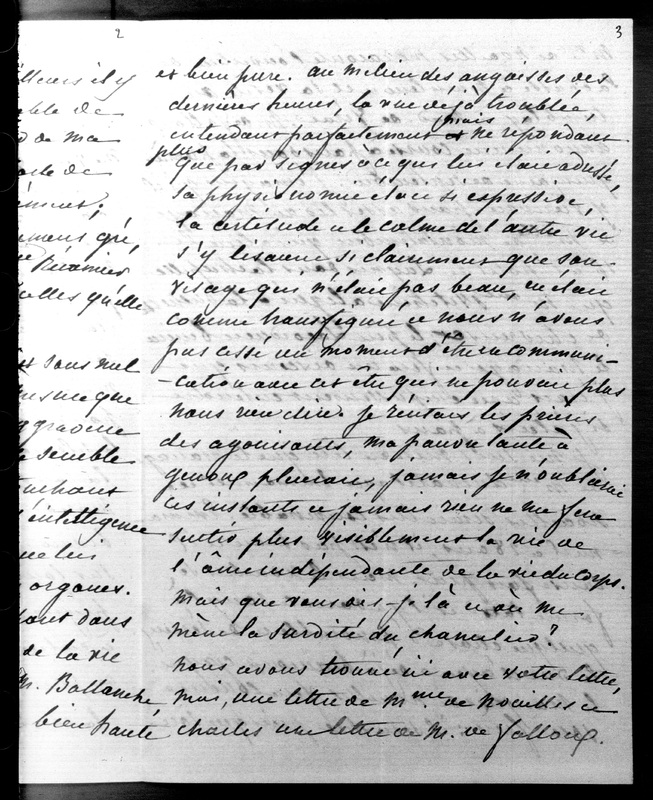 2
3
illeurs il y
able de
de ma
de
gré,
Récamier
qu'elle
sous mul
que
gravure
semble
touchant
intelligence
lui
organes.
dans
de la vie
M. Ballanche,
bien hanté
et bien pure. au milieu des angoisses des
dernières heures, la vue déjà troublée,
entendant parfaitement mais ne répondant
plus
que par signes à ce qui lui était adressé,
sa physionomie était si expressive,
la certitude et le calme de l'autre vie
s'y lisaient si clairement que son
visage qui n'était pas beau, en était
comme transfiguré et nous n'avons
pas cessé un moment d'être en communi-
-cation avec cet être qui ne pouvait plus
nous rien dire. je récitais les prières
des agonisants, ma pauvre tante à
genoux pleurait, jamais je n'oublierai
ces instants et jamais rien ne me fera
sentir plus visiblement la vie de
l'âme indépendante de la vie du corps.
mais que vous dis-je là et où me
mène la surdité du chancelier?
nous avons trouvé ici avec votre lettre,
moi, une lettre de Mme de Noailles et
Charles une lettre de M. de Falloux.